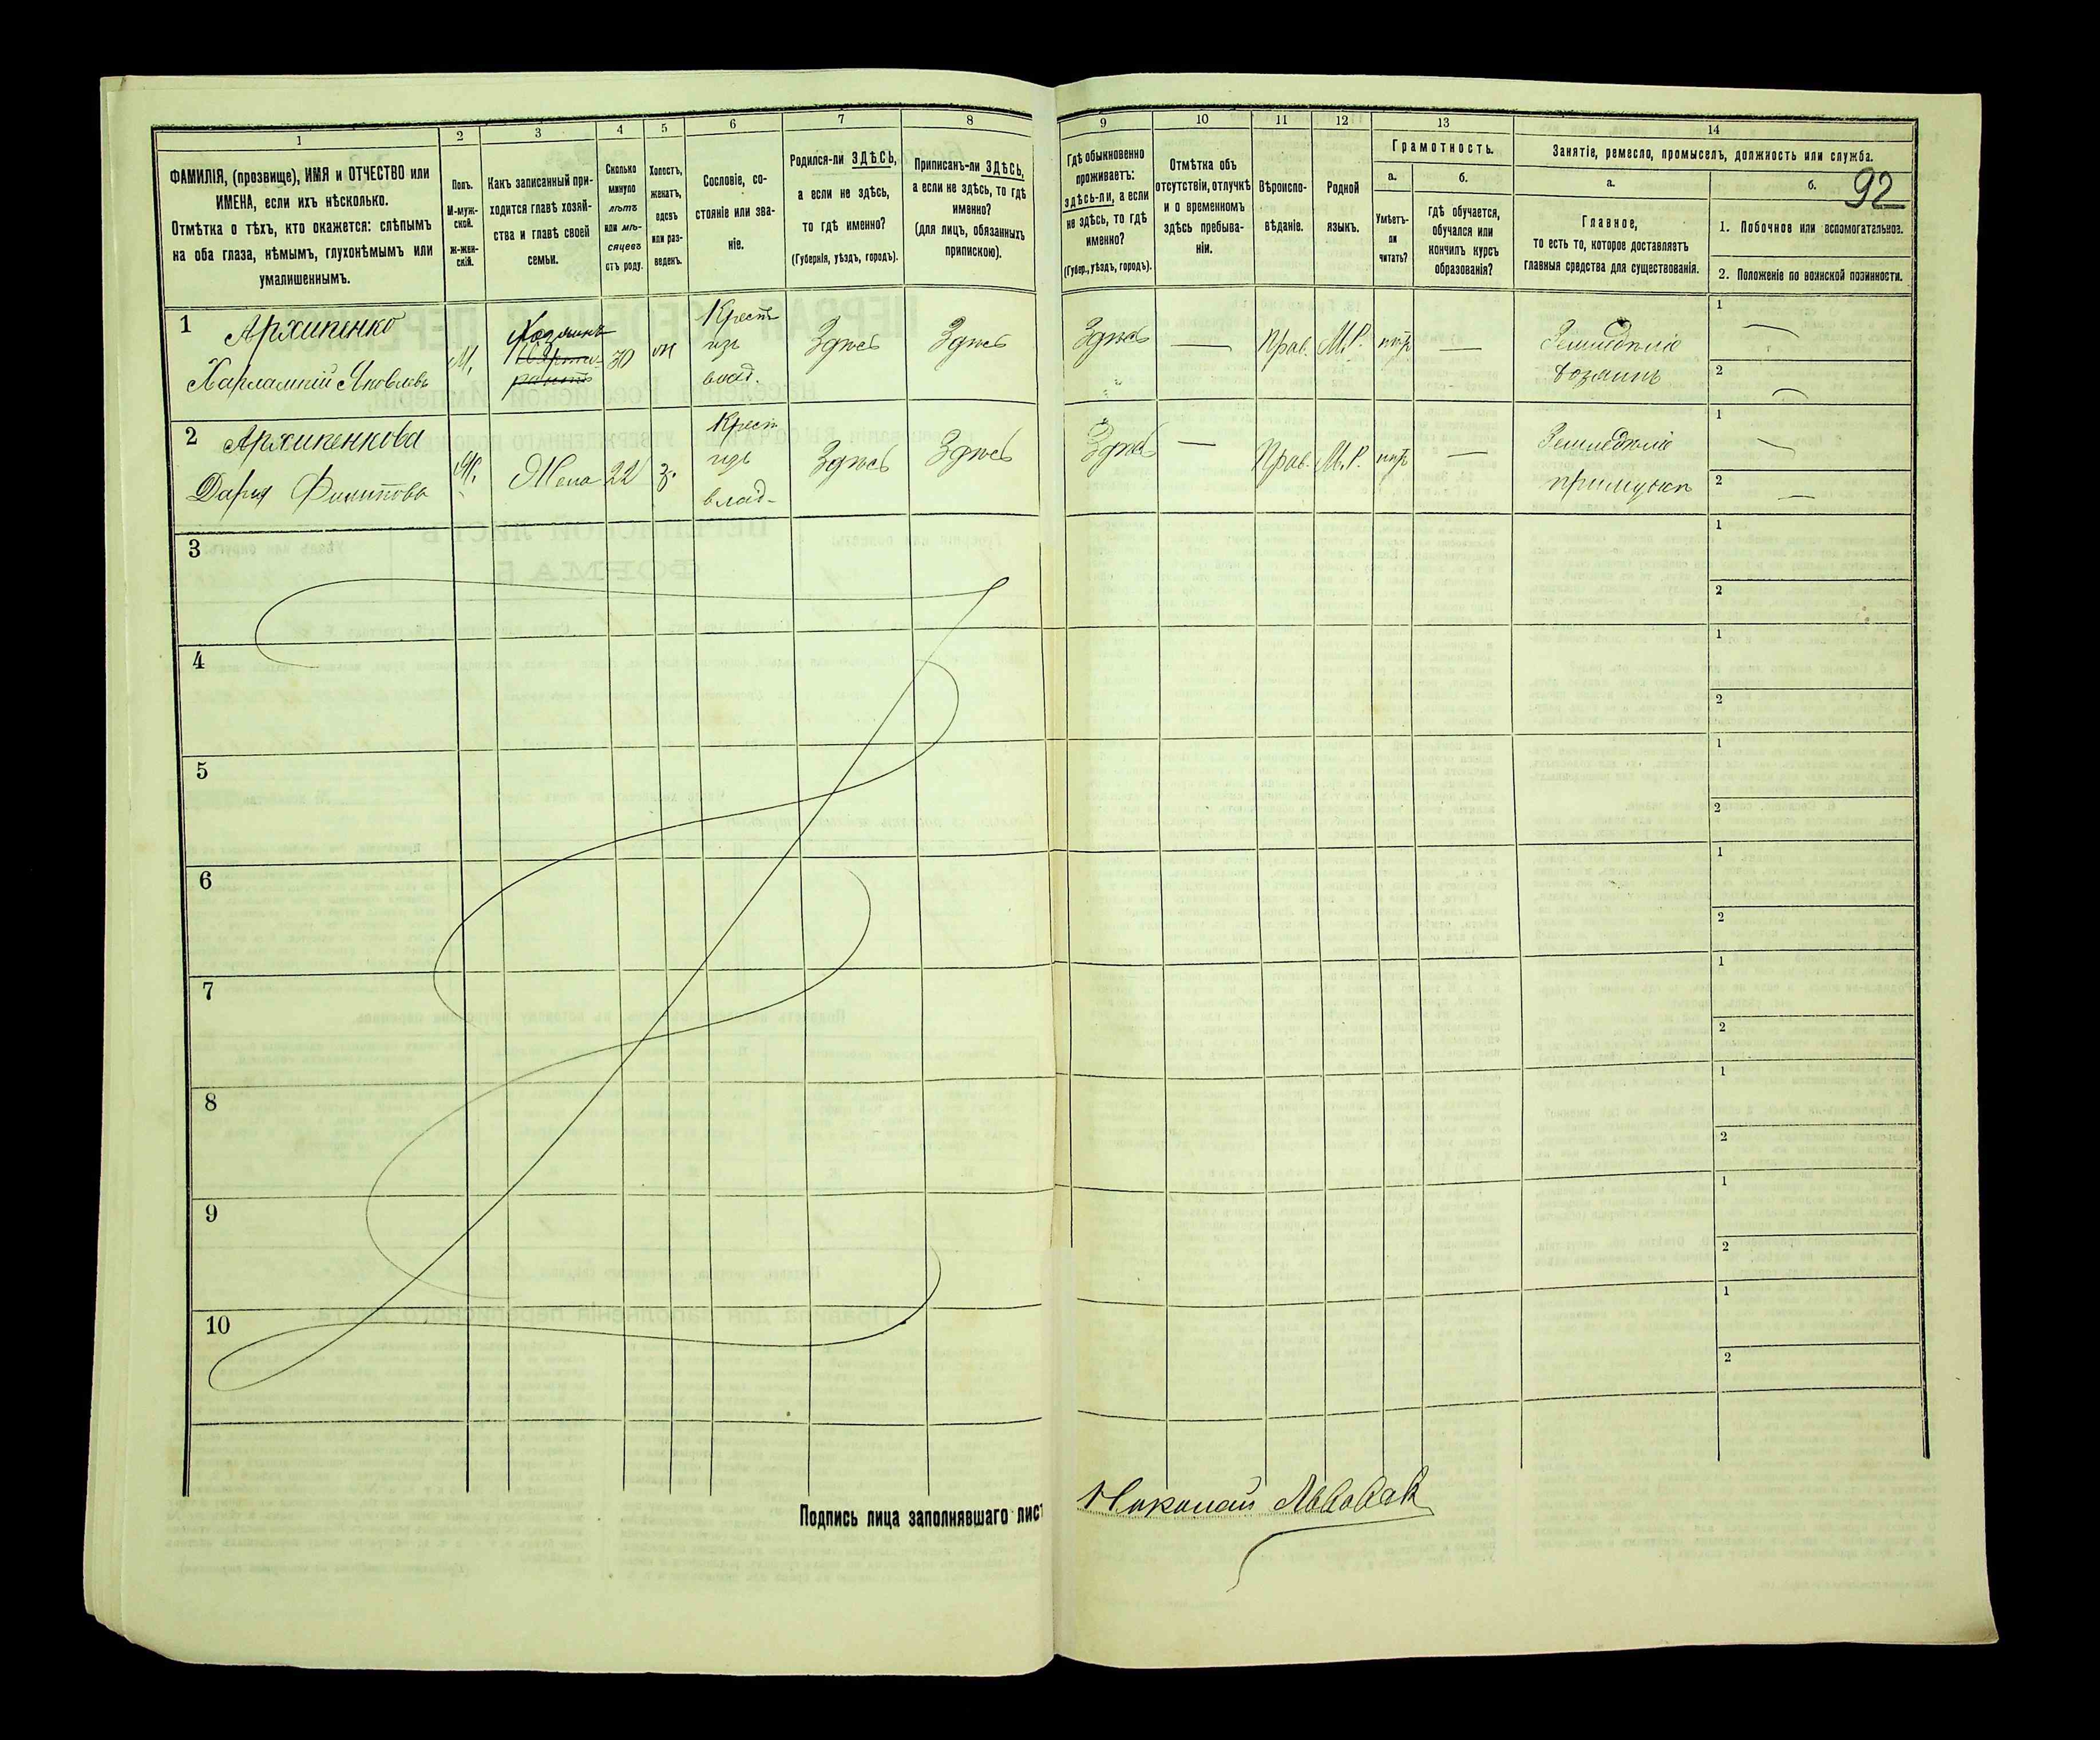 1
2
3
4
5
6
7
8
ФАМИЛІЯ, (прозвище), ИМЯ и ОТЧЕСТВО или
ИМЕНА, если ихъ нѣсколько.
Отмѣтка о тѣхъ, кто окажется: слѣпымъ
на оба глаза, нѣмымъ, глухонѣмымъ или
умалишеннымъ.
Полъ.
М-муж-
ской.
ж-жен-
скій.
Какъ записанный при-
ходится главѣ хозяй-
ства и главѣ своей
семьи.
Сколько
минуло
лѣтъ
или мѣ-
сяцевъ
отъ роду.
Холостъ,
женатъ,
вдовъ
или раз-
веденъ.
Сословіе, со-
стояніе или зва-
ніе.
Родился-ли ЗДѢСЬ,
а если не здѣсь,
то гдѣ именно?
(Губернія, уѣздъ, городъ).
Приписанъ-ли ЗДѢСЬ,
а если не здѣсь, то гдѣ
именно?
(для лицъ, обязанныхъ
припискою).
1
Архипенко
Харлампій Яковлевъ
М.
Хозяинъ
30
Крест
изъ
влад.
Здѣсь
Здѣсь
2
Архипенкова
Дарья Филипова
Ж.
Жена
22
з.
Крест
изъ
влад.
Здѣсь
Здѣсь
3
4
5
6
7
8
9
10
Подпись лица заполнявшаго лист
9
10
11
12
13
14
92
Гдѣ обыкновенно
проживаетъ:
здѣсь-ли, а если
не здѣсь, то гдѣ
именно?
(Губер., уѣздъ, городъ).
Отмѣтка объ
отсутствіи, отлучкѣ
и о временномъ
здѣсь пребыва-
ніи.
Вѣроиспо-
вѣданіе.
Родной
языкъ.
Грамотность.
а.
Умѣетъ-
ли
читать?
б.
Гдѣ обучается,
обучался или
кончилъ курсъ
образованія?
Занятіе, ремесло, промыселъ, должность или служба.
а.
Главное,
то есть то, которое доставляетъ
главныя средства для существованія.
б.
1. Побочное или вспомогательное.
2. Положеніе по воинской повинности.
Здѣсь
—
Прав.
М.Р.
нѣтъ
—
Земледѣліе
хозяинъ
1
—
2
—
Здѣсь
—
Прав.
М.Р.
нѣтъ
—
Земледѣліе
1
—
2
—
1
2
1
2
1
2
1
2
1
2
1
2
1
2
1
2
Николай